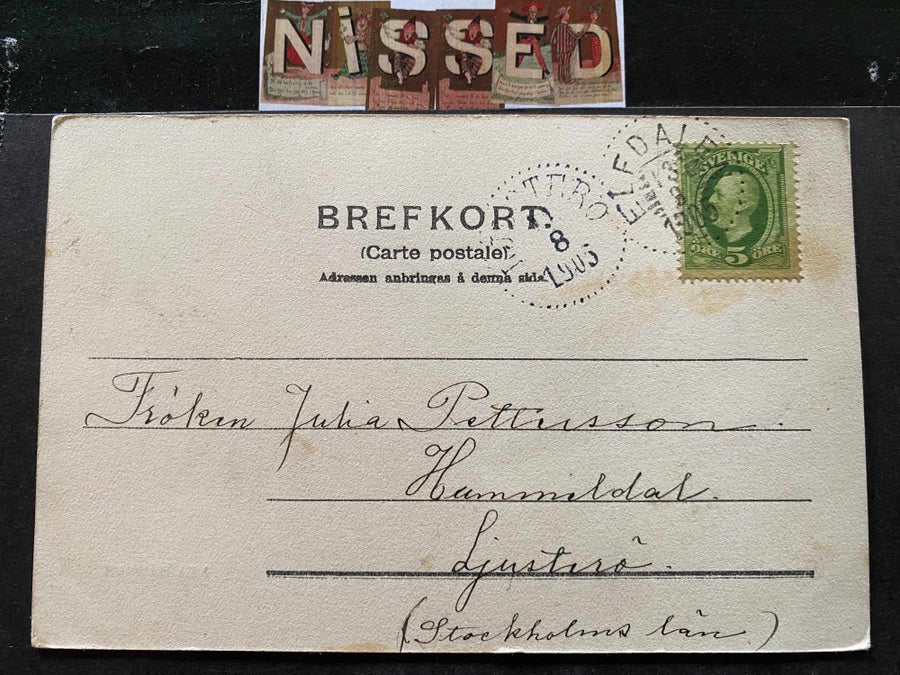 NiSSED
BREFKORT.
(Carte postale)
Adressen anbringas å denna sida.
8
ELFDALE
SVERIGE
5
ÖRE ÖRE
Fröken Julia Pettersson.
Hummeldal.
Ljusterö.
(Stockholms län.)